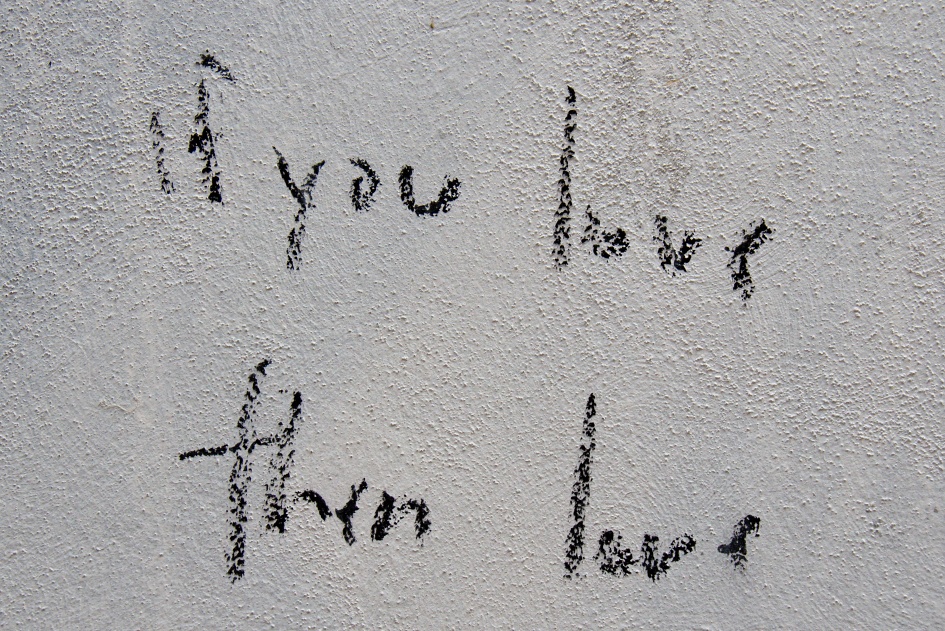 If you love
then love